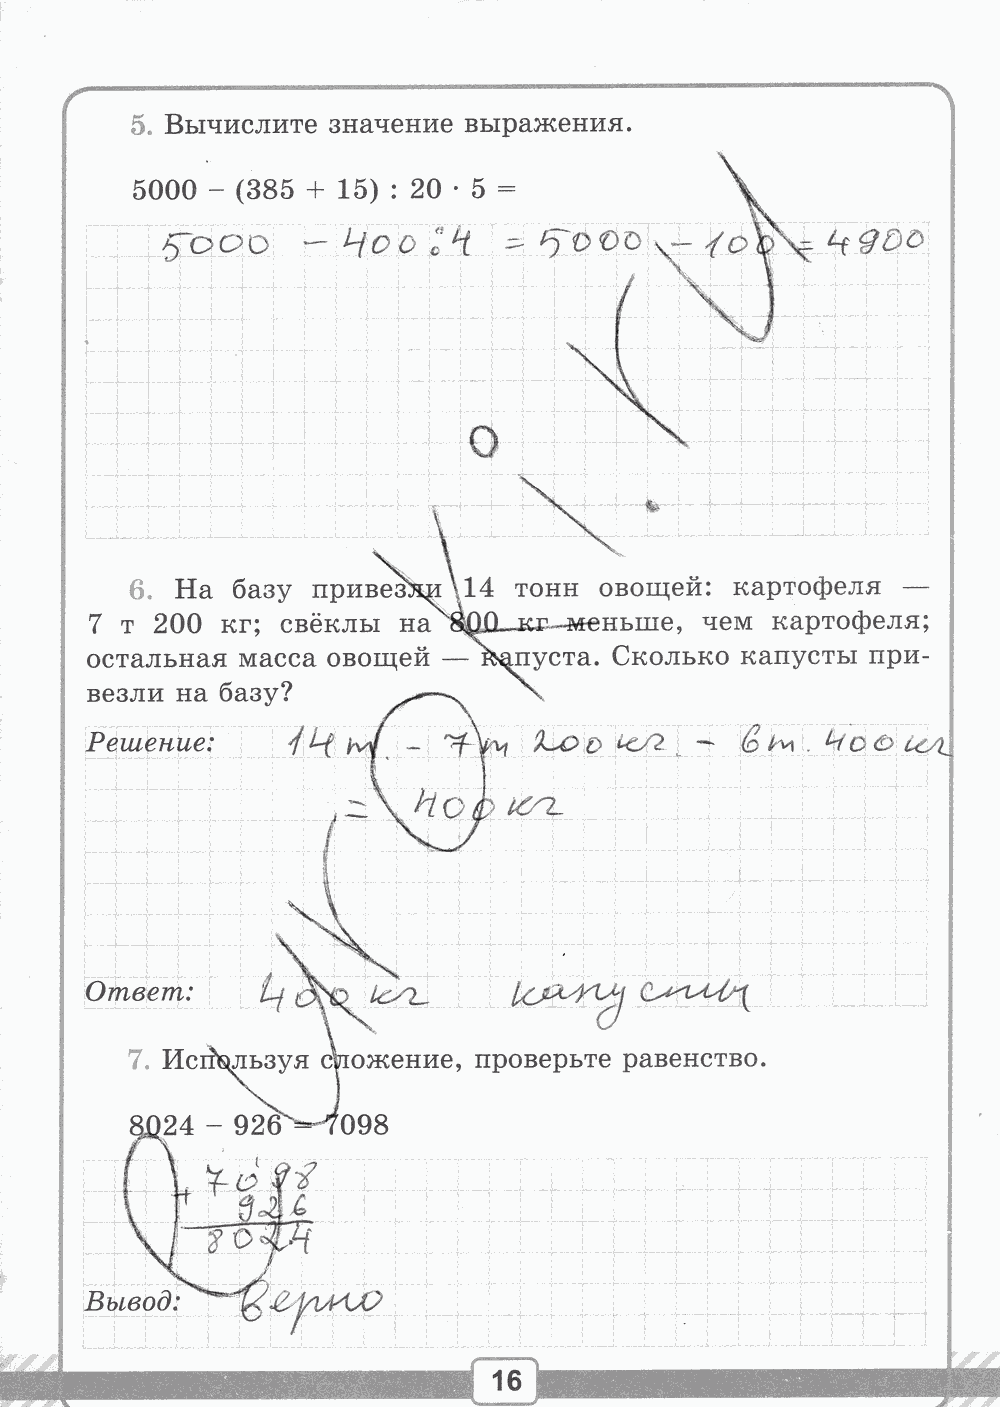 5. Вычислите значение выражения.
5000 – (385 + 15) : 20 · 5 =
5000 – 400 : 4 = 5000 – 100 = 4900
6. На базу привезли 14 тонн овощей: картофеля —
7 т 200 кг; свёклы на 800 кг меньше, чем картофеля;
остальная масса овощей — капуста. Сколько капусты при-
везли на базу?
Решение: 14 т. – 7 т 200 кг. – 6 т. 400 кг
= 400 кг
Ответ: 400 кг капусты
7. Используя сложение, проверьте равенство.
8024 – 926 = 7098
1
+ 7098
926
8024
Вывод: верно
16